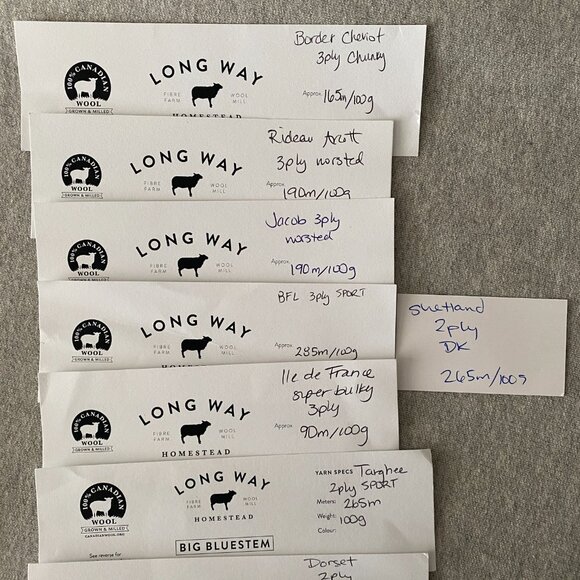 100% CANADIAN
WOOL
GROWN & MILLED
LONG WAY
FIBRE FARM
WOOL MILL
HOMESTEAD
Border Cheviot
3ply Chunky
Approx. 165m/100g
100% CANADIAN
WOOL
GROWN & MILLED
LONG WAY
FIBRE FARM
WOOL MILL
Rideau Arcott
3ply worsted
Approx. 190m/100g
100% CANADIAN
WOOL
LONG WAY
FIBRE FARM
WOOL MILL
Jacob 3ply
worsted
Approx. 190m/100g
100% CANADIAN
WOOL
LONG WAY
FIBRE FARM
WOOL MILL
BFL 3ply SPORT
Approx. 285m/100g
Shetland
2ply
DK
265m/100g
100% CANADIAN
WOOL
GROWN & MILLED
LONG WAY
FIBRE FARM
WOOL MILL
HOMESTEAD
Ile de France
super bulky
3ply
Approx. 90m/100g
100% CANADIAN
WOOL
GROWN & MILLED
CANADIANWOOL.ORG
See reverse for
LONG WAY
FIBRE FARM
WOOL MILL
HOMESTEAD
BIG BLUESTEM
YARN SPECS Targhee
2ply SPORT
Meters: 265m
Weight: 100g
Colour:
Dorset
2ply